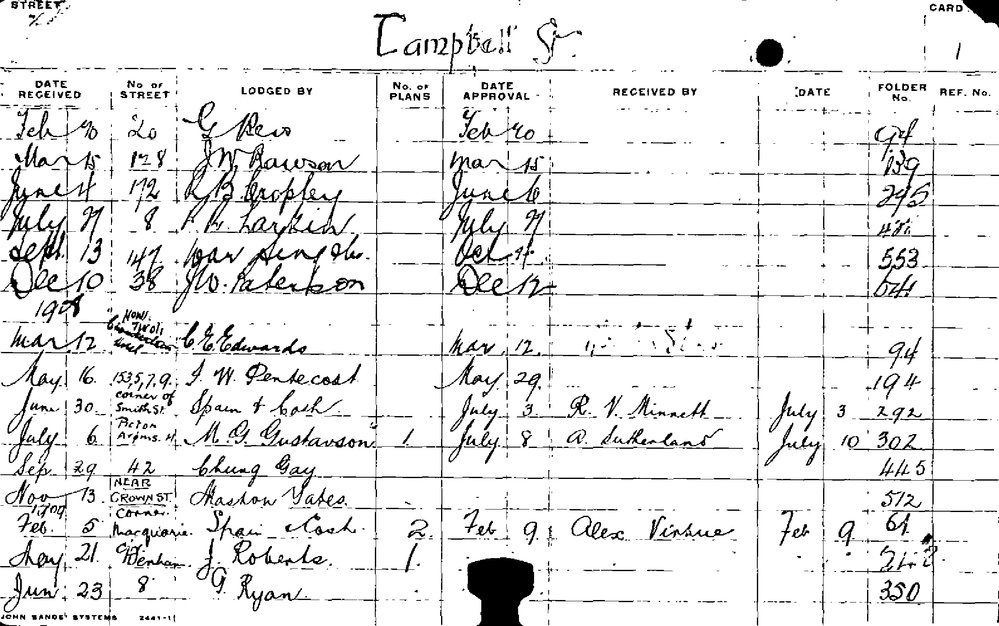 STREET
CARD
Campbell St. 1
DATE RECEIVED No OF STREET LODGED BY No. OF PLANS DATE APPROVAL RECEIVED BY DATE FOLDER No. REF. No.
Feb 20 20 G Feb 20 94
Mar 15 128 J W Rawson Mar 15 139
June 4 172 B Cropley June 6 295
July 27 8 Larkin July 27
Sept 13 147 War Sing & Co. Oct 553
Dec 10 38 J W. Paterson Dec 12 641
1908
Mar. 12 NOW. TIVOLI C. E Edwards Mar. 12. 94
May 16. 153,5,7,9. J. W Pentecost May 29. 194
June 30. corner of Smith St. Spain & Cosh July 3. R. V. Minnett July 3 292
July 6. Picton Arms. H. M. G. Gustavson 1. July 8 A. Sutherland July 10 302
Sep. 29 42 Chung Gay 445
Nov 13. NEAR CROWN ST. Yates. 512
1909
Feb. 5 Corner Macquarie. Spain & Cosh. 2. Feb 9. Alex Virtue Feb 9 61
May 21. Denham J. Roberts. 1.
Jun 23 8 G Ryan 350
JOHN SANDS' SYSTEMS 2441-11